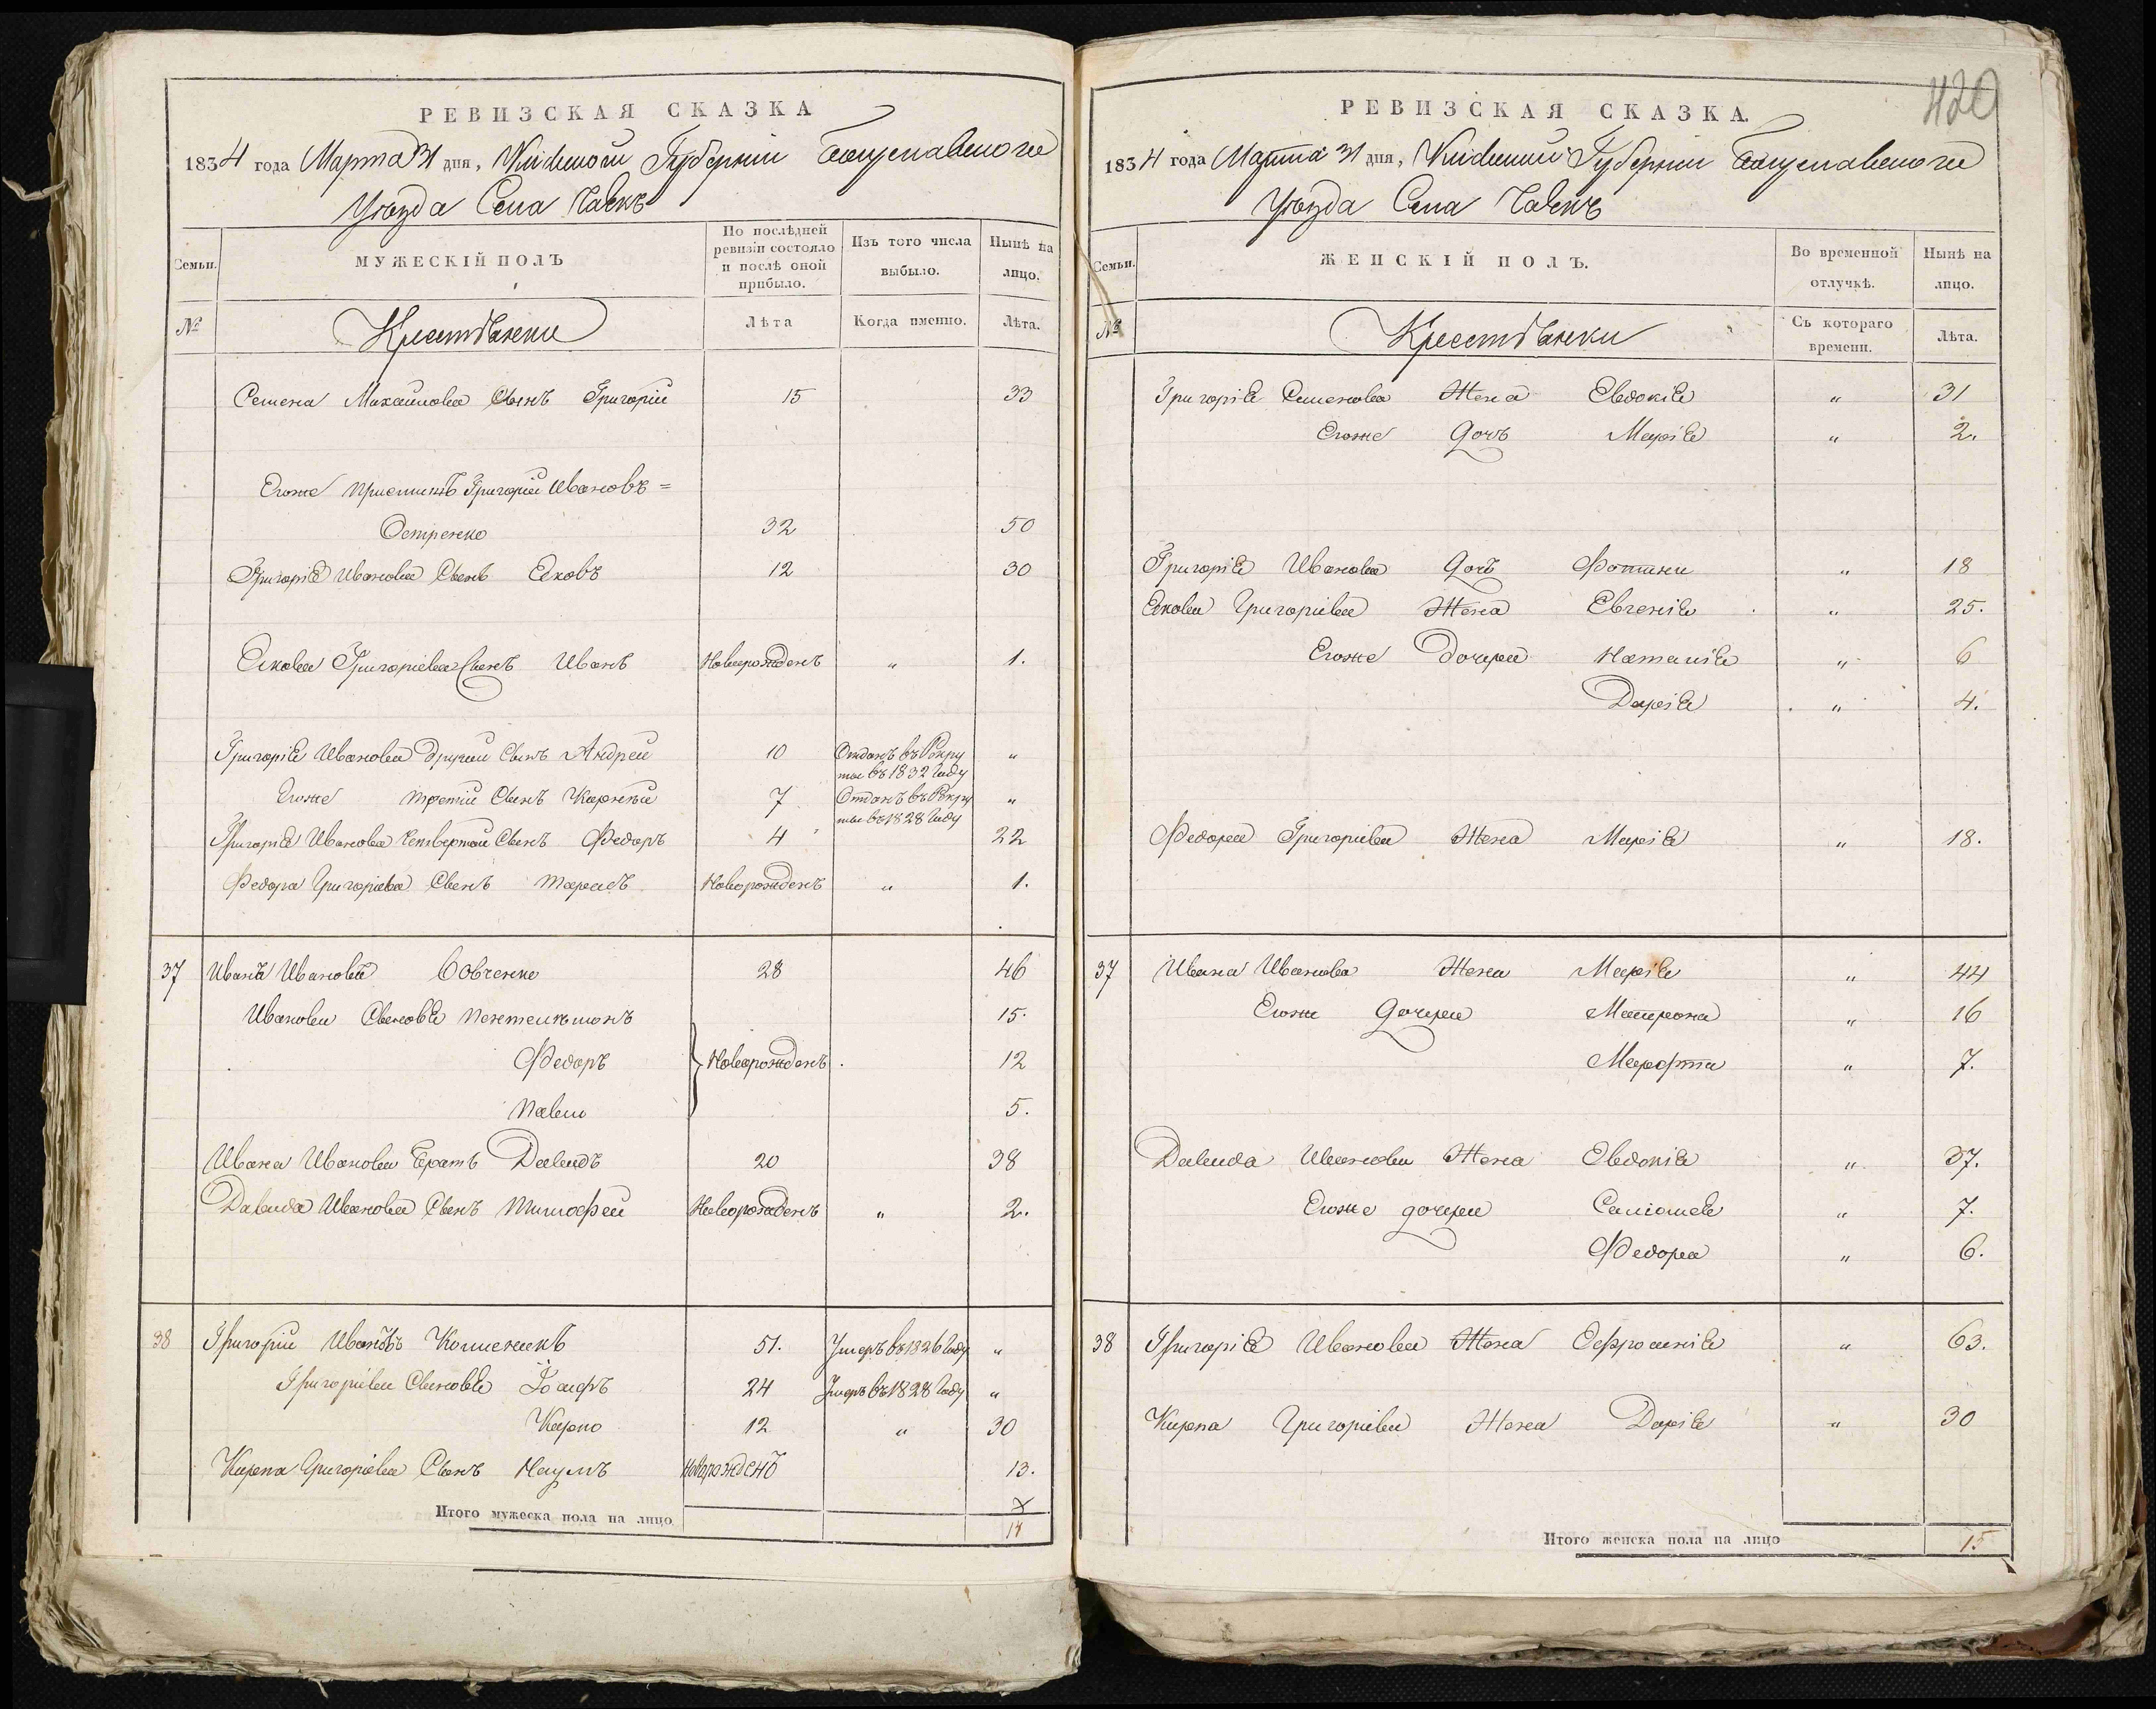 РЕВИЗСКАЯ СКАЗКА
1834 года Марта 31 дня, Кіевской Губерніи Богуславскаго
Уѣзда Села
Семьи.
МУЖЕСКІЙ ПОЛЪ
По послѣдней ревизіи состояло и послѣ оной прибыло.
Изъ того числа выбыло.
Нынѣ на лицо.
№
Крестьяне
Лѣта
Когда именно.
Лѣта.
Семена Михайлова Сынъ Григорій 15 33
Егоже Григорій Ивановъ =
Остренко 32 50
Григорія Иванова Сынъ Яковъ 12 30
Якова Григоріева Сынъ Иванъ Новорожденъ " 1.
Григорія Иванова другий Сынъ Андрей 10 Отданъ въ Рекру
ты въ 1832 Году "
Егоже третій Сынъ Карнѣй 7 Отданъ въ Рекру
ты въ 1828 Году "
Григорія Иванова Четвертой Сынъ Федоръ 4 22
Федора Григоріева Сынъ Тарасъ Новорожденъ " 1.
37 Иванъ Ивановъ Вовченко 28 46
Ивановы Сыновья Пантелимонъ 15.
Федоръ Новорожденъ 12
Павло 5.
Ивана Иванова Братъ Давидъ 20 38
Давида Иванова Сынъ Тимофей Новорожденъ " 2.
38 Григорій Ивановъ 51. Умеръ въ 1826 Году "
Григоріевы Сыновья Іосифъ 24 Умеръ въ 1828 Году "
Карпо 12 " 30
Карпа Григоріева Сынъ Наумъ Новорожденъ 13.
Итого мужеска пола на лицо
14
420
РЕВИЗСКАЯ СКАЗКА.
1834 года Марта 31 дня, Кіевской Губерніи Богуславскаго
Уѣзда Села
Семьи.
ЖЕНСКІЙ ПОЛЪ.
Во временной отлучкѣ.
Нынѣ на лицо.
№
Крестьянки
Съ котораго времени.
Лѣта.
Григорія Семенова Жена Евдокія " 31
Егоже Дочь Марія " 2.
Григорія Иванова Дочь Фотини " 18
Якова Григоріева Жена Евгенія " 25.
Егоже Дочери Наталія " 6
Дарія " 4.
Федора Григоріева Жена Марія " 18.
37 Ивана Иванова Жена Марія " 44
Егоже Дочери Матрона " 16
Марфта " 7.
Давида Иванова Жена Евдокія " 37.
Егоже дочери Саломея " 7.
Федора " 6.
38 Григорія Иванова Жена Ефросинія " 63.
Карпа Григоріева Жена Дарія " 30
Итого женска пола на лицо 15